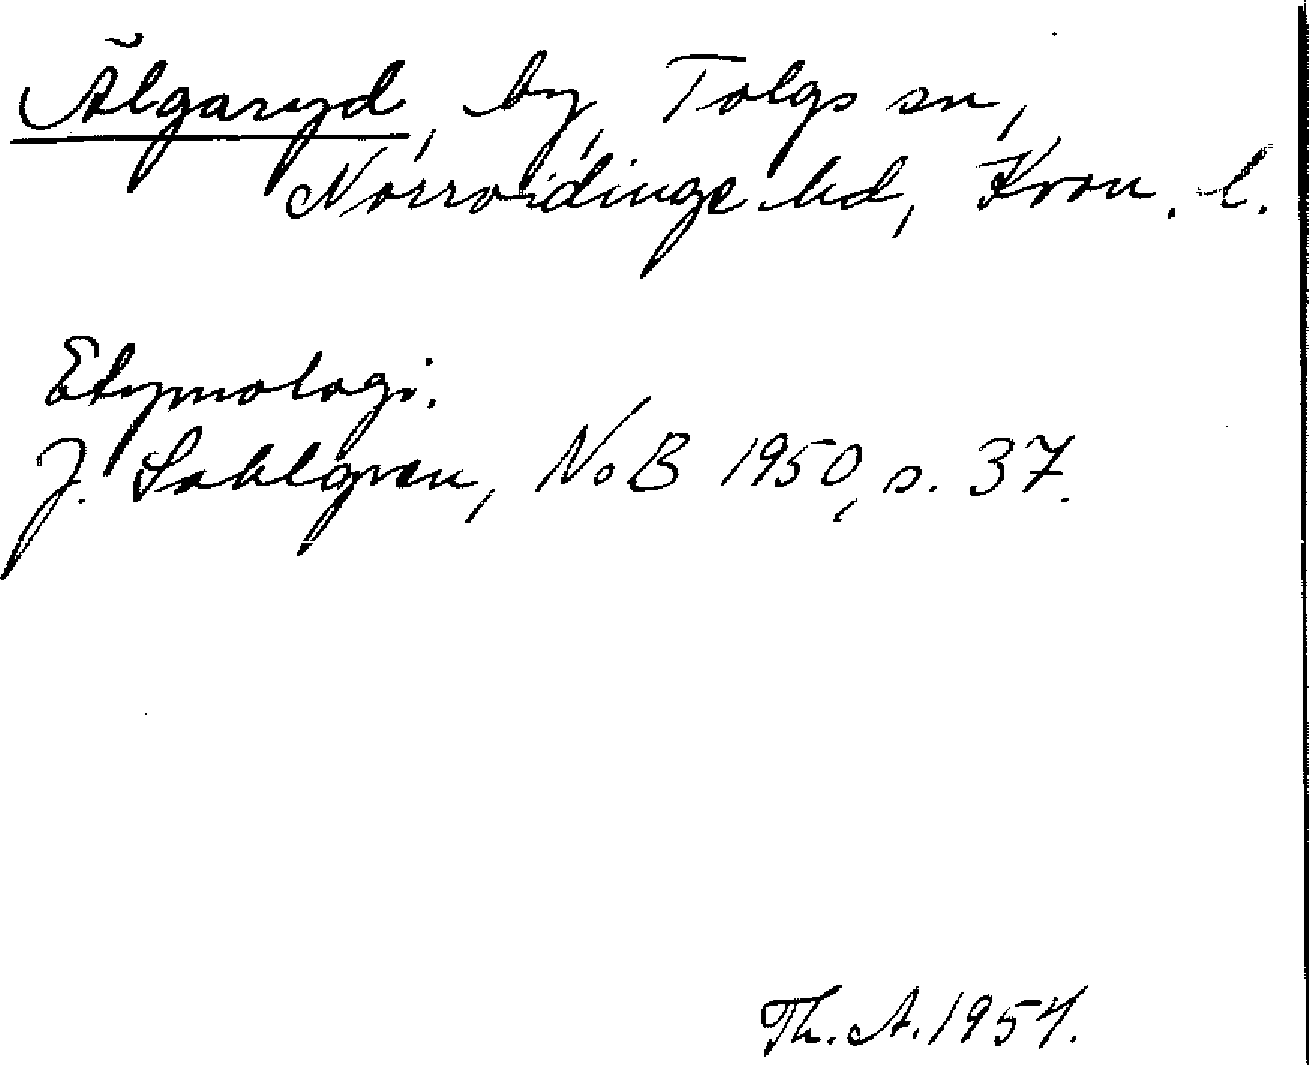 Älgaryd, by, Tolgs sn,
Norrvidinge hd, Kron. l.
Etymologi.
J. Sahlgren, NoB 1950, s. 37.
Th. A. 1954.